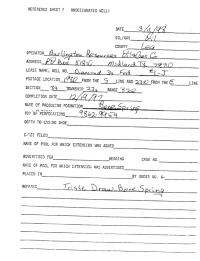 REFERENCE SHEET F UNDESIGNATED WELLS
DATE 3/11/98
OIL/GAS Oil
COUNTY Lea
OPERATOR Burlington Resources Oil & Gas Co
ADDRESS PO Box 51810 Midland Tx 79710
LEASE NAME, WELL NO. 34 Fed
FOOTAGE LOCATION FROM THE S LINE AND FROM THE E LINE
SECTION 34 TOWNSHIP 23s RANGE 32e
COMPLETION DATE
NAME OF PRODUCING FORMATION Bone Spring
TOP OF PERFORATIONS 9862-9954
DEPTH TO CASING SHOE
C-123 FILED
NAME OF POOL FOR WHICH EXTENSION WAS ASKED
ADVERTISED FOR HEARING CASE NO.
NAME OF POOL FOR WHICH EXTENSION WAS ADVERTISED
PLACED IN BY ORDER NO. R-
REMARKS Triste Draw Bone Spring